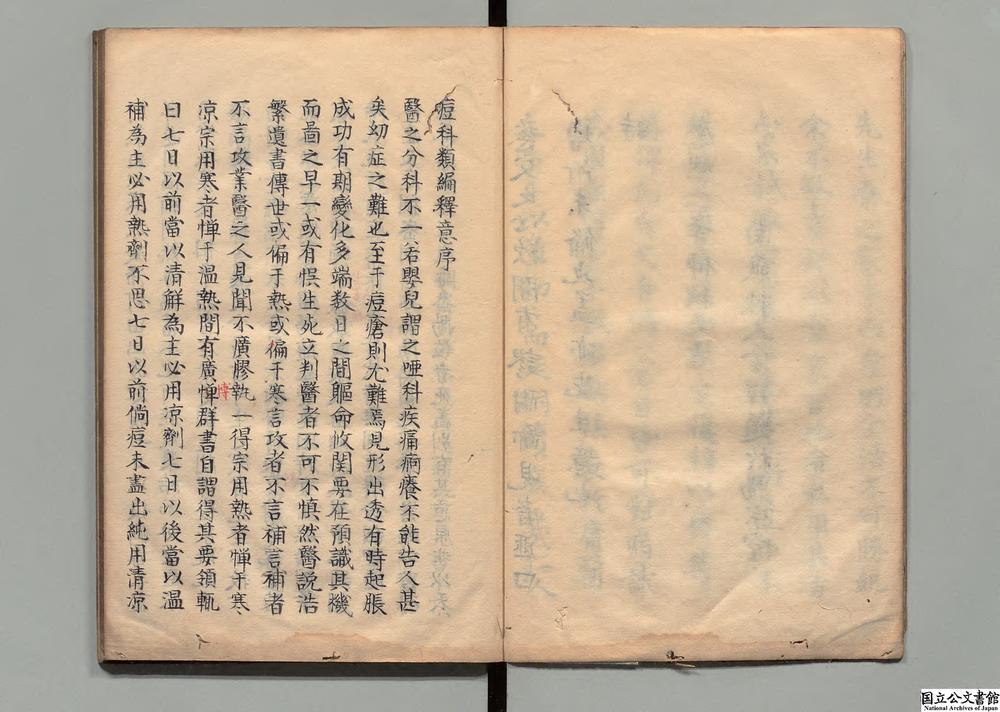 痘科類編釋意序
醫之分科不一若嬰兒謂之啞科疾痛痾癢不能告人甚
矣幼症之難也至于痘瘡則尤難焉見形出透有時起脹
成功有期變化多端数日之間軀命攸関要在預識其機
而啚之早一或有悮生死立判醫者不可不慎然醫説浩
繁遺書傳世或偏于熱或偏于寒言攻者不言補言補者
不言攻業醫之人見聞不廣膠執一得宗用熱者惮于寒
凉宗用寒者惮于温熱間有廣惮群書自謂得其要領輒
博
曰七日以前當以清解為主必用凉劑七日以後當以温
補為主必用熱劑不思七日以前倘痘未盡出純用清凉
国立公文書館
National Archives of Japan